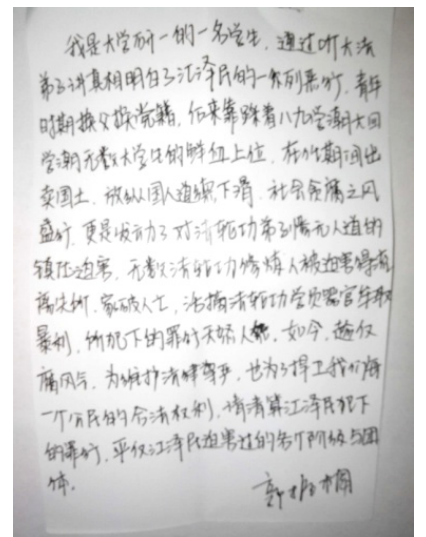 我是大学研一的一名学生，通过听大法
弟子讲真相明白了江泽民的一系列恶行，青年
时期换父换党籍，后来靠踩着八九学潮大
学潮无数大学生的鲜血上位，在位期间出
卖国土，放纵国人道德下滑，社会贪腐之风
盛行，更是发动了对法轮功弟子惨无人道的
镇压迫害，无数法轮功修炼人被迫害得流
离失所，家破人亡，活摘法轮功学员器官牟取
暴利，所犯下的罪行天怒人怨，如今，趁反
腐风气，为维护法律尊严，也为了捍卫我们每
一个公民的合法权利，请清算江泽民犯下
的罪行，平反江泽民迫害过的各个阶级与团
体.
郭